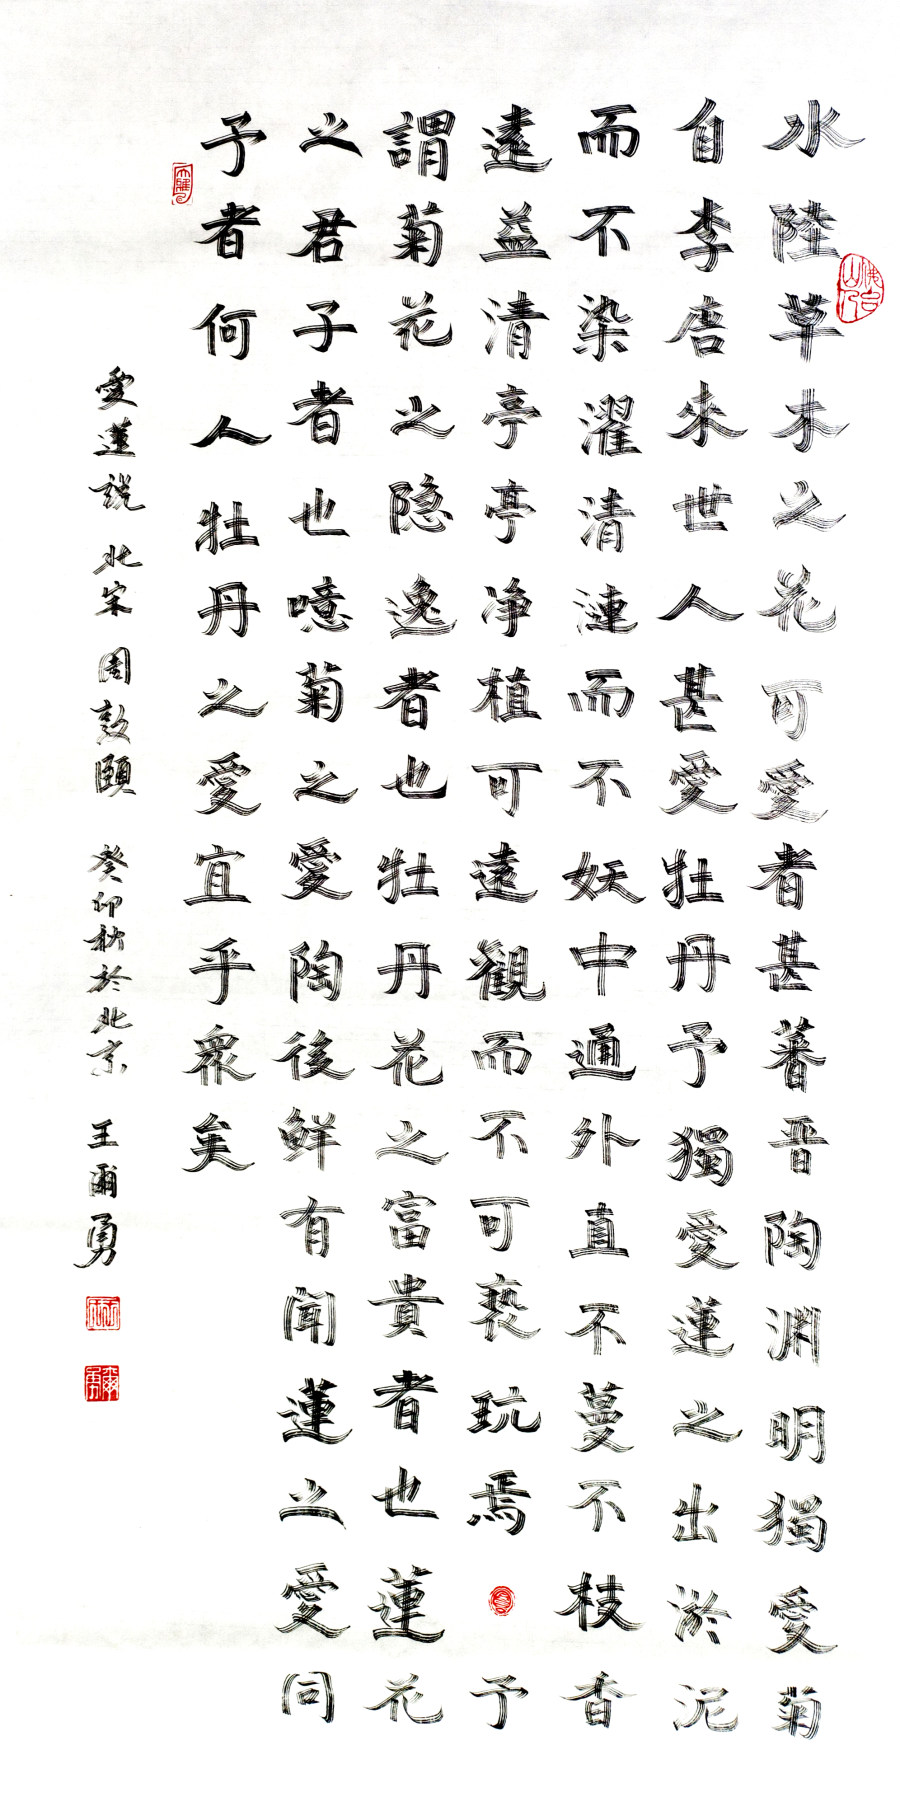 水陸草木之花可愛者甚蕃晉陶淵明獨愛菊
自李唐來世人甚愛牡丹予獨愛蓮之出淤泥
而不染濯清漣而不妖中通外直不蔓不枝香
遠益清亭亭净植可遠觀而不可褻玩焉予
謂菊花之隐逸者也牡丹花之富貴者也蓮花
之君子者也噫菊之愛陶後鮮有聞蓮之愛同
予者何人牡丹之愛宜乎衆矣
愛蓮説 北宋 周敦頤 癸卯秋於北京 王爾勇